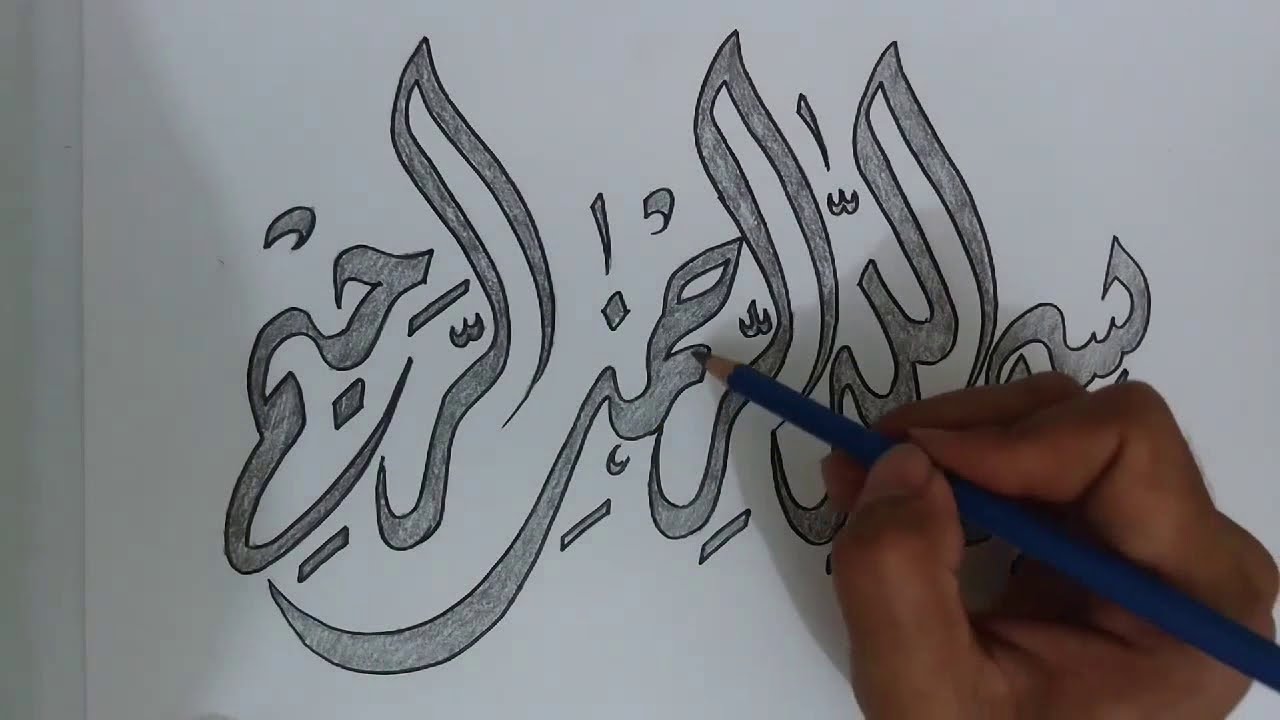 بسم الله الرَّحْمٰنِ الرَّحِيمِ